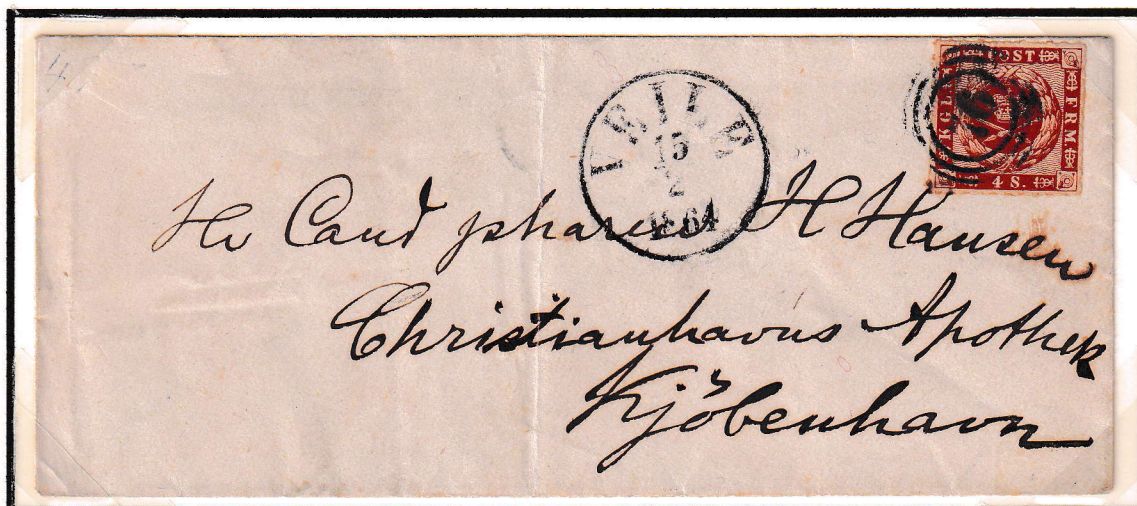 KGL. POST FRM.
4 S.
VEILE
15
2
1864
Hr Cand pharm H Hansen
Christianhavns Apothek
Kjöbenhavn